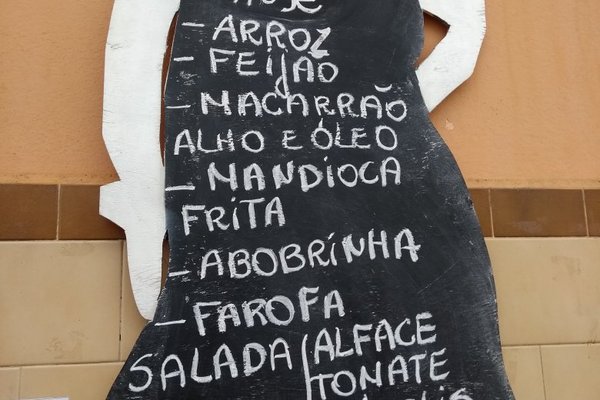 HOJE
- ARROZ
- FEIJÃO
- MACARRÃO
ALHO E ÓLEO
- MANDIOCA
FRITA
- ABOBRINHA
- FAROFA
SALADA ALFACE
TONATE